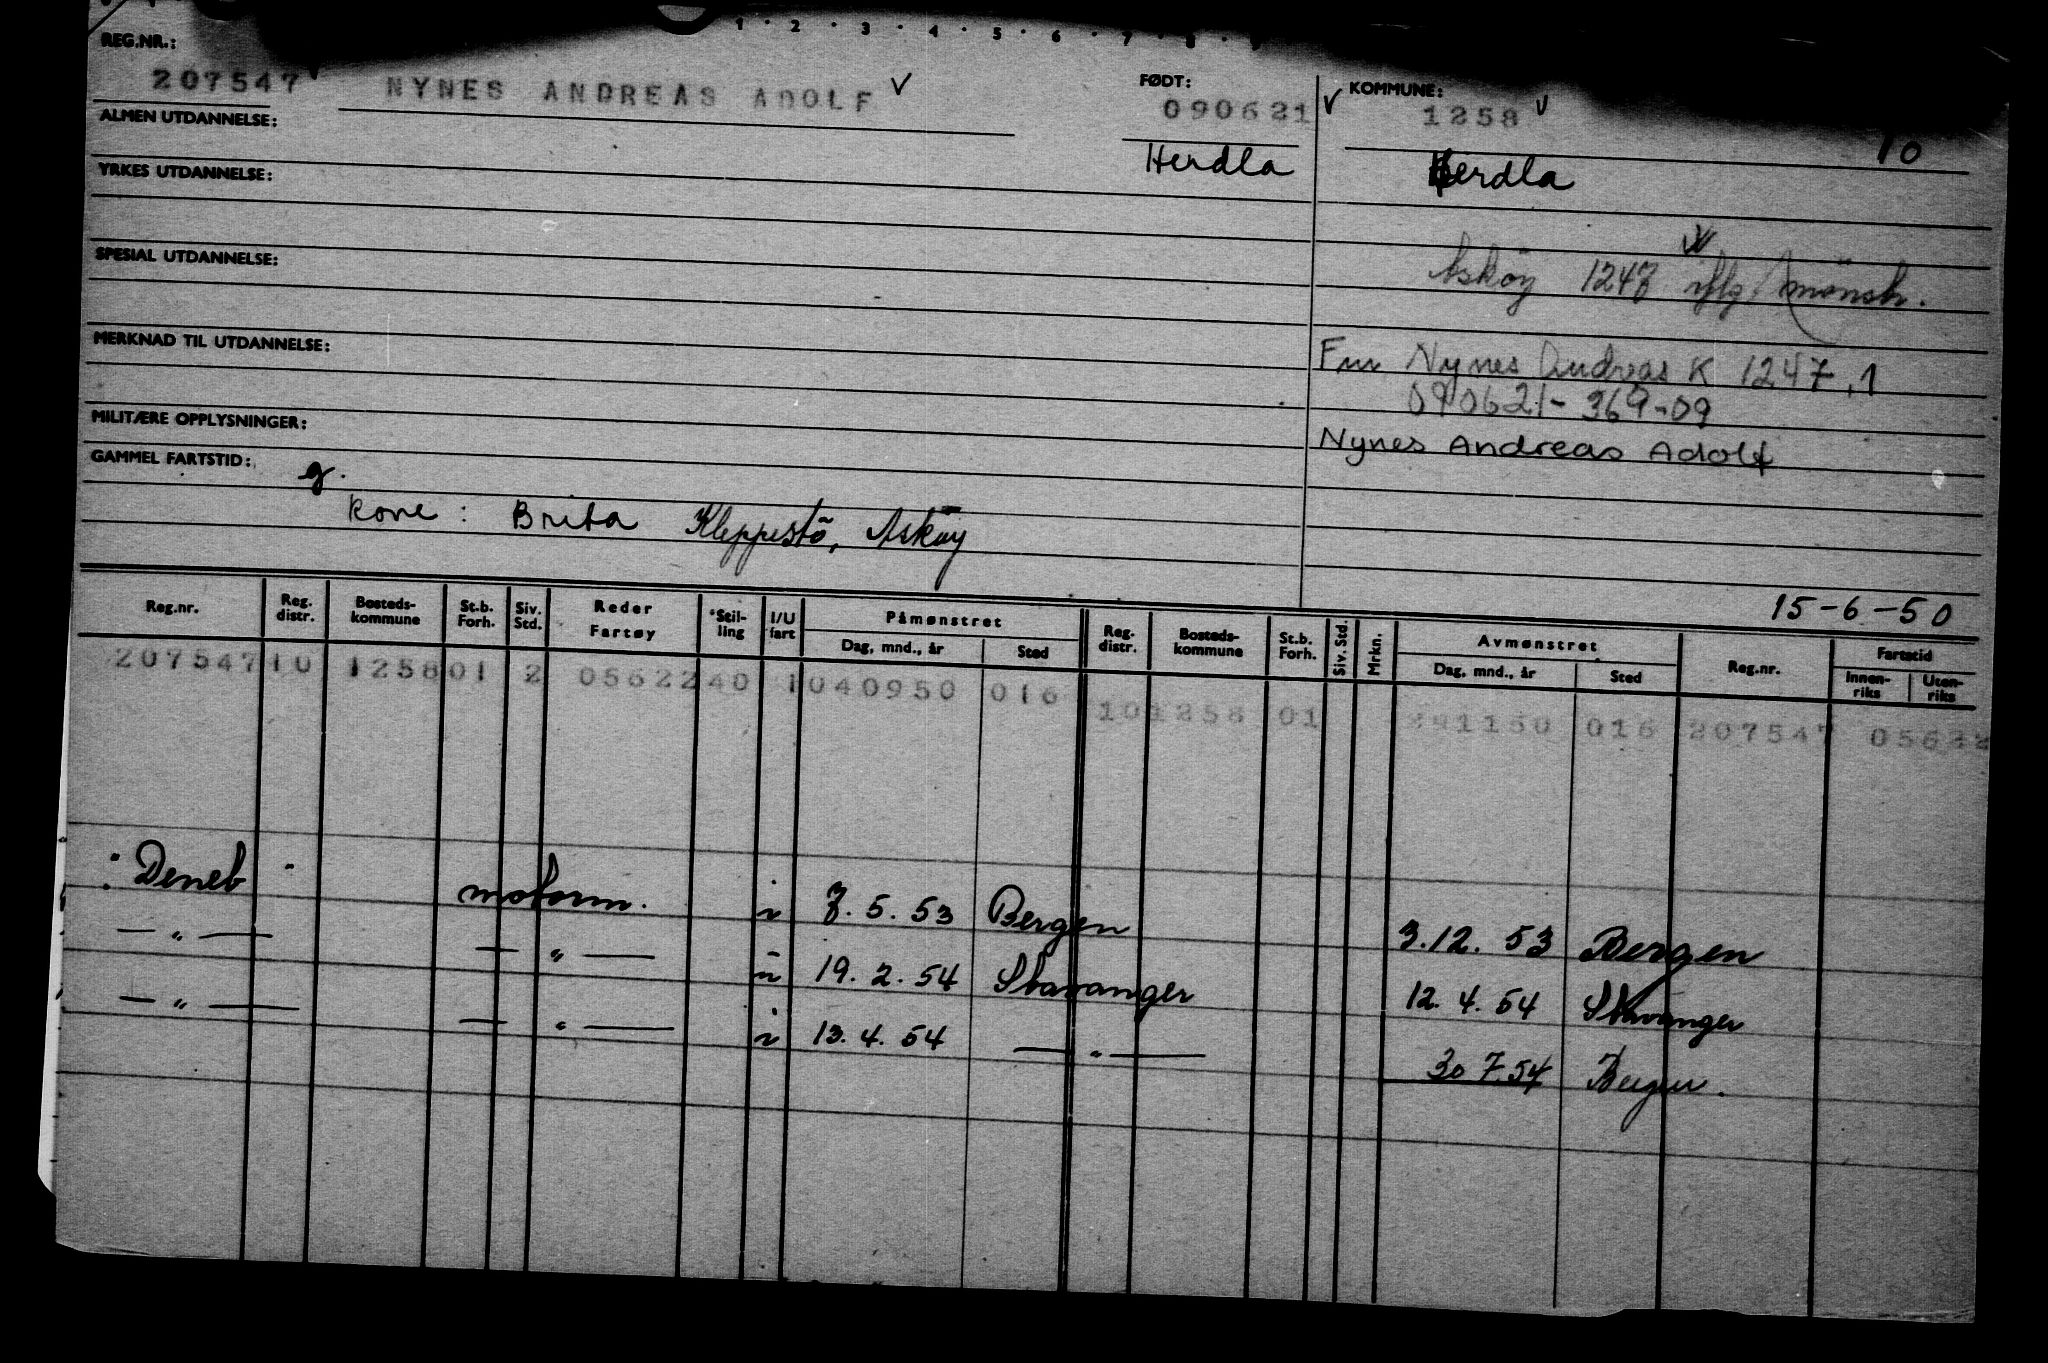 1 · 2 · 3 · 4 · 5 · 6 · 7 · 8 ·
REG.NR.:
207547 NYNES ANDREAS ADOLF
FØDT:
090621
Herdla
KOMMUNE:
1258
10
Herdla
ALMEN UTDANNELSE:
YRKES UTDANNELSE:
SPESIAL UTDANNELSE:
Askøy 1247 iflg mønstr.
MERKNAD TIL UTDANNELSE:
Fm Nynes Andreas K 1247,1
090621-369-09
MILITÆRE OPPLYSNINGER:
Nynes Andreas Adolf
GAMMEL FARTSTID:
g.
kone: Brita Kleppestö, Askøy
15-6-50
Reg.nr. Reg. distr. Bosteds-kommune St.b. Forh. Siv. Std. Reder Fartøy *Stil-ling I/U fart Påmønstret Dag, mnd., år Sted Reg. distr. Bosteds-kommune St.b. Forh. Siv. Std. Mrkn. Avmønstret Dag, mnd., år Sted Reg.nr. Fartstid Innen-riks Uten-riks
207547 10 1258 01 2 05622 40 1 040950 016 10 1258 01 1150 016 207547 05622
"Deneb" motorm. i 7.5.53 Bergen 3.12.53 Bergen
— " — — " — u 19.2.54 Stavanger 12.4.54 Stavanger
— " — — " — i 13.4.54 — " — 30 7.54 Bergen.